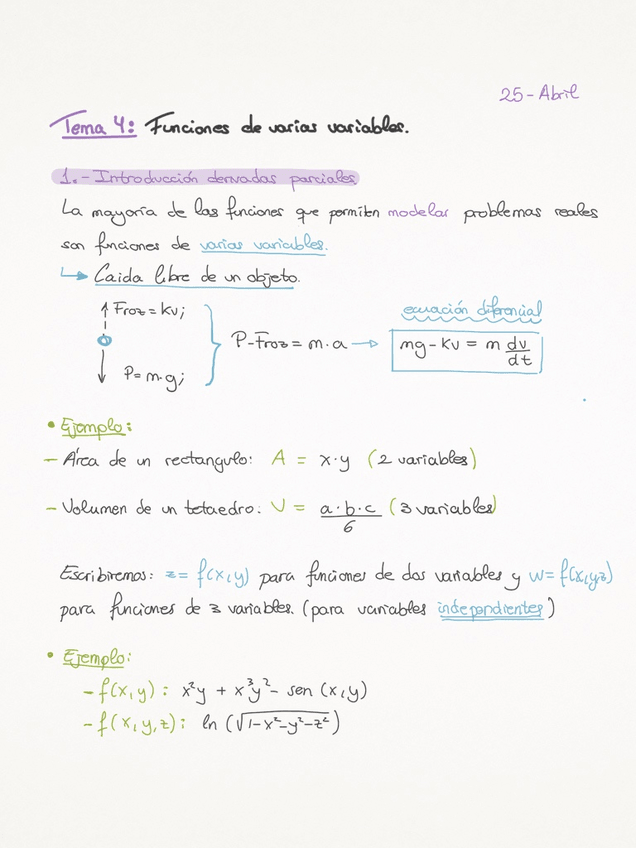 25-Abril
Tema 4: Funciones de varias variables.
1.- Introducción derivadas parciales
La mayoría de las funciones que permiten modelar problemas reales
son funciones de varias variables.
↳ Caida libre de un objeto.
Froz = kv;
P = m·g;
P-Froz = m·a →
ecuación diferencial
mg - kv = m dv/dt
• Ejemplo:
- Área de un rectangulo: A = x·y (2 variables)
- Volumen de un tetaedro: V = a·b·c/6 (3 variables)
Escribiremos: z = f(x,y) para funciones de dos variables y w = f(x,y,z)
para funciones de 3 variables. (para variables independientes)
• Ejemplo:
- f(x,y): x²y + x³y² - sen (x,y)
- f(x,y,z): ln (√1-x²-y²-z²)